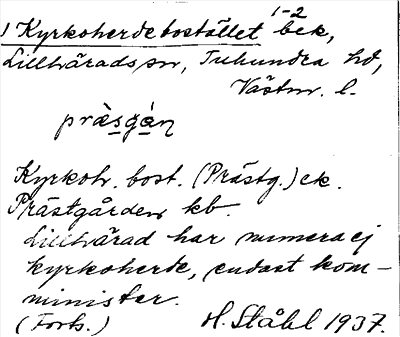 1 Kyrkoherdebostället 1-2 bek,
Lillhärads sn, Tuhundra hd,
Västm. l.
prä̀sgá̀n
Kyrkoh. bost. (Prästg.) ek.
Prästgården kb.
Lillhärad har numera ej
kyrkoherde, endast kom-
minister.
(Forts.) H. Ståhl 1937.